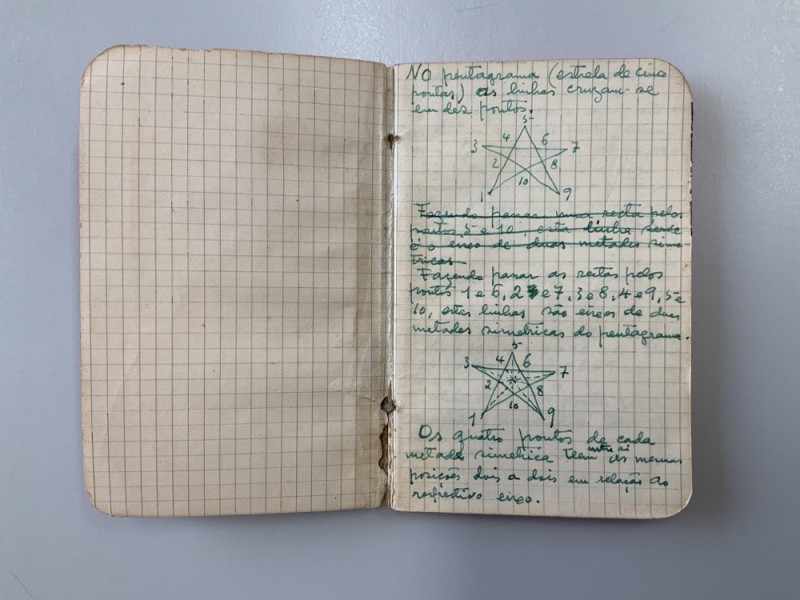 No pentagrama (estrela de cinco
pontas) as linhas cruzam-se
em dez pontos.
5
4 6
3 7
2 8
10
1 9
Fazendo passar uma recta pelos
pontos 5 e 10, esta linha
é o eixo de duas metades sime-
tricas
Fazendo passar as rectas pelos
pontos 1 e 6, 2 e 7, 3 e 8, 4 e 9, 5 e
10, estas linhas são eixos de duas
metades simetricas do pentagrama.
5
4 6
3 7
2 8
10
1 9
Os quatro pontos de cada
metade simetrica teem entre si as mesmas
posições dois a dois em relação ao
respectivo eixo.